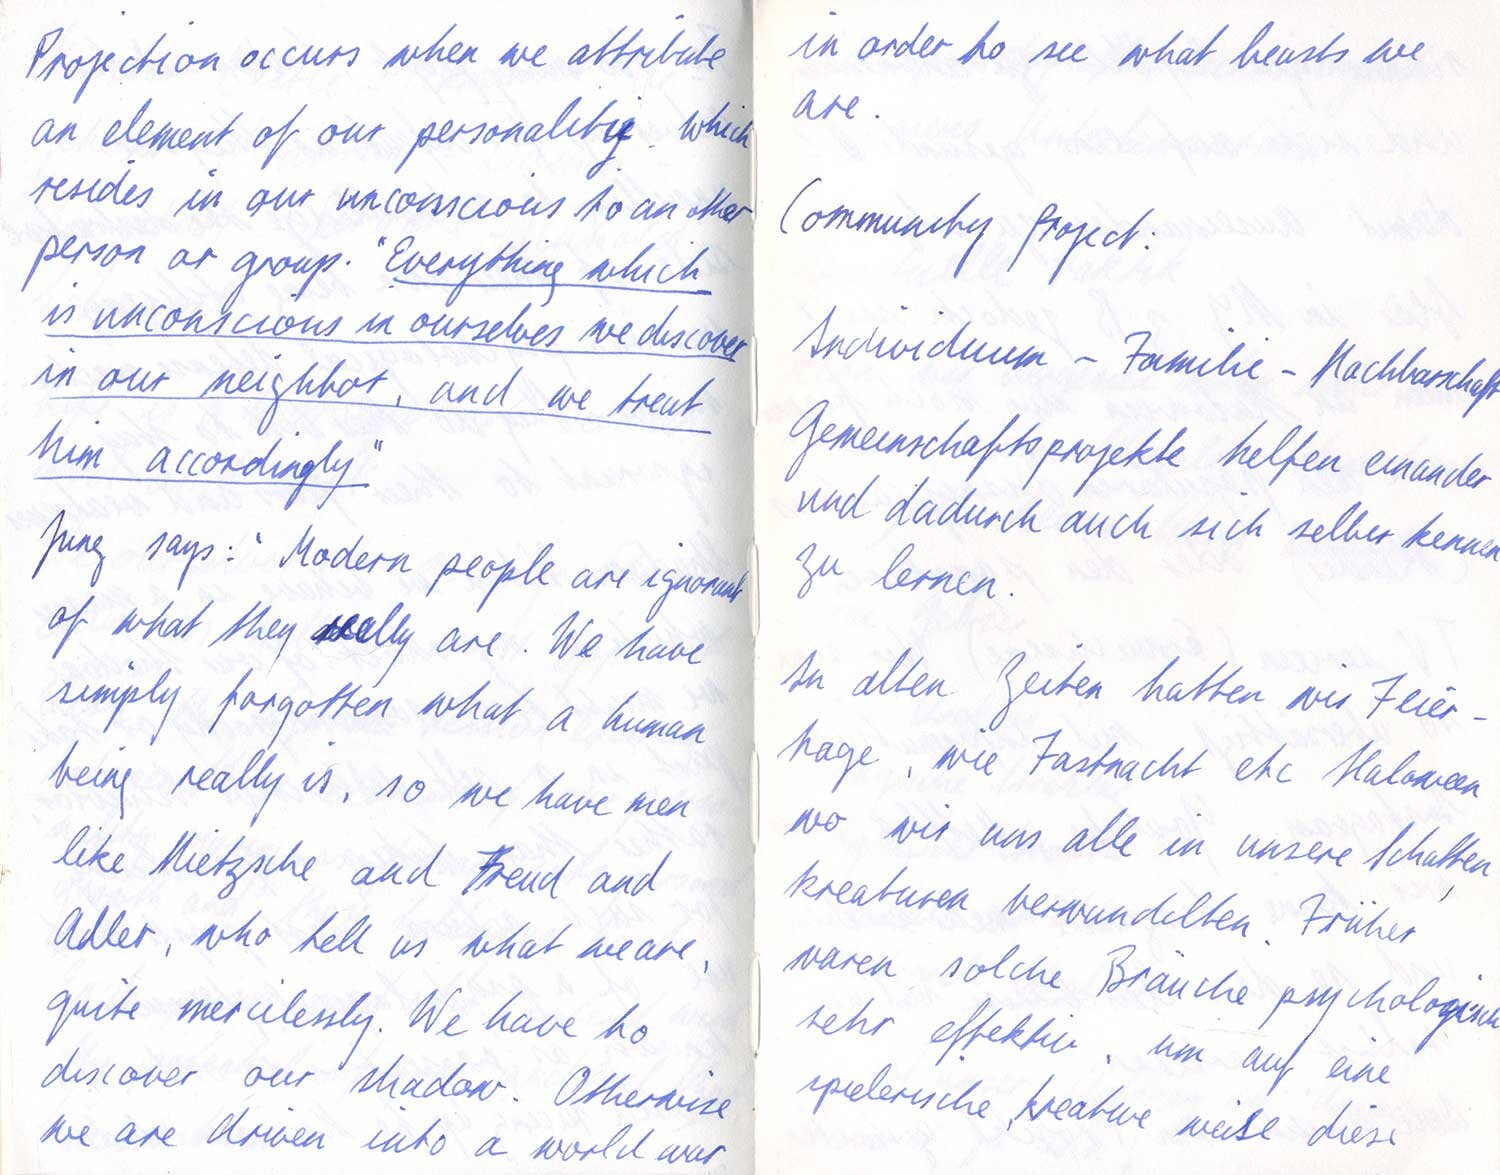 Projection occurs when we attribute
an element of our personality which
resides in our unconscious to another
person or group. "Everything which
is unconscious in ourselves we discover
in our neighbor, and we treat
him accordingly"
Jung says: "Modern people are ignorant
of what they really are. We have
simply forgotten what a human
being really is, so we have men
like Nietzsche and Freud and
Adler, who tell us what we are,
quite mercilessly. We have to
discover our shadow. Otherwise
we are driven into a world war
in order to see what beasts we
are.
Community Project.
Individuum - Familie - Nachbarschaft
Gemeinschaftsprojekte helfen einander
und dadurch auch sich selber kennen
zu lernen.
In alten Zeiten hatten wir Feier-
tage, wie Fastnacht etc Haloween
wo wir uns alle in unsere Schatten
kreaturen verwandelten. Früher
waren solche Bräuche psychologisch
sehr effektiv, um auf eine
spielerische, kreative weise diese